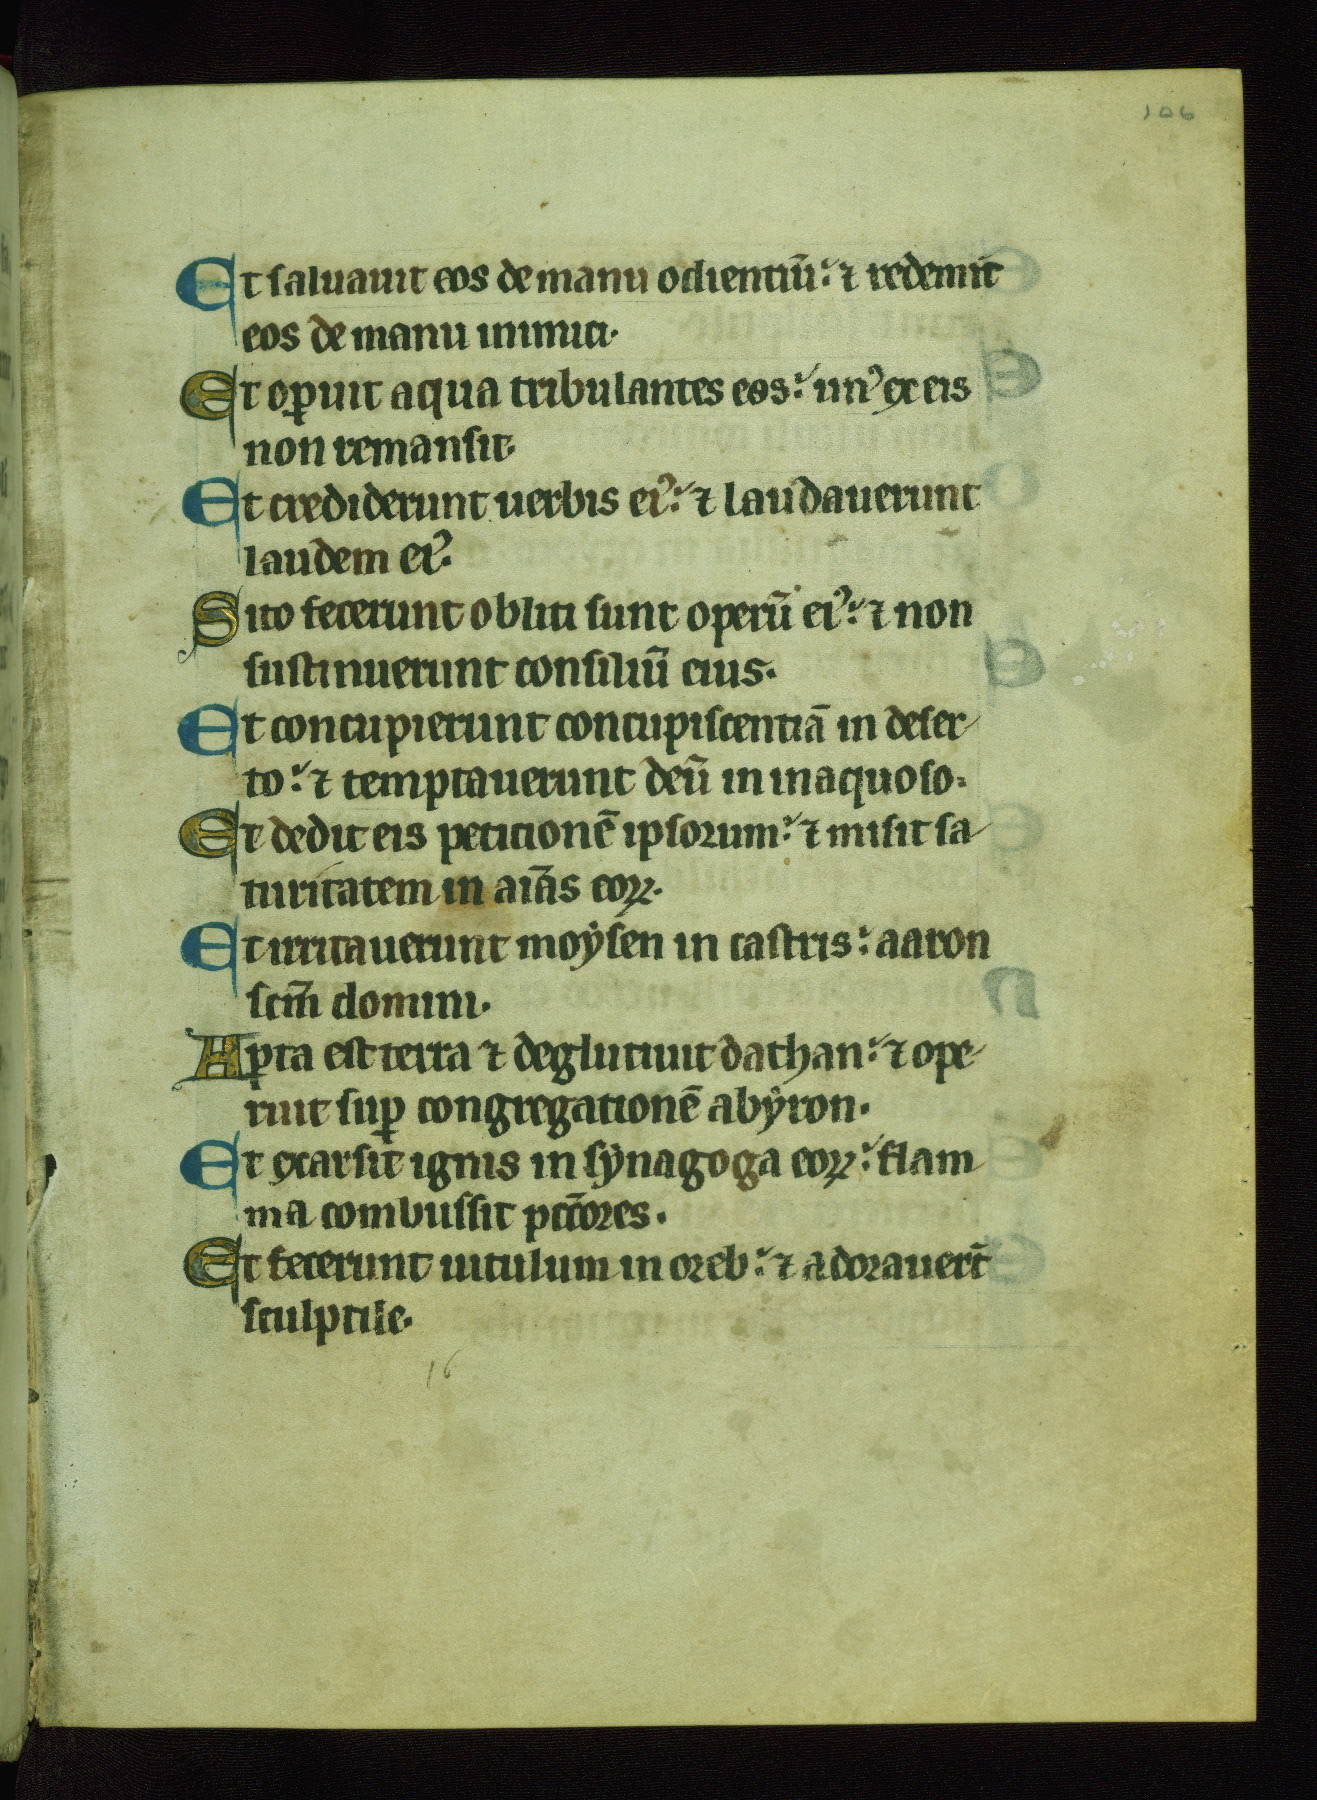 106
Et saluauit eos de manu odientiū: ⁊ redemit
eos de manu inimici.
Et oꝑuit aqua tribulantes eos: un᾿ ex eis
non remansit.
Et crediderunt uerbis ei᾿: ⁊ laudauerunt
laudem ei᾿.
Sito fecerunt obliti sunt operū ei᾿: ⁊ non
sustinuerunt consiliū eius.
Et concupierunt concupiscentiā in deser
to: ⁊ temptauerunt deū in inaquoso.
Et dedit eis peticionē ipsorum: ⁊ misit sa
turitatem in aīas eoꝝ.
Et irritauerunt moẏsen in castris: aaron
scm̄ domini.
Aꝑta est terra ⁊ deglutiuit dathan: ⁊ ope
ruit suꝑ congregationē abẏron.
Et exarsit ignis in sẏnagoga eoꝝ: flam
ma combussit pcc̄ores.
Et fecerunt uitulum in oreb: ⁊ adorauert̄
sculptile.
16